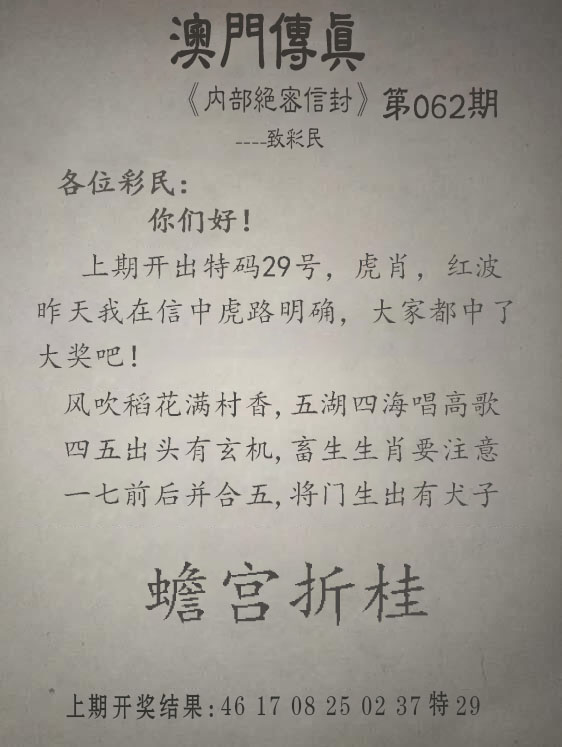 澳門傳眞
《内部絕密信封》第062期
----致彩民
各位彩民:
你们好!
上期开出特码29号，虎肖，红波
昨天我在信中虎路明确，大家都中了
大奖吧!
风吹稻花满村香,五湖四海唱高歌
四五出头有玄机,畜生生肖要注意
一七前后并合五,将门生出有犬子
蟾宫折桂
上期开奖结果:46 17 08 25 02 37 特 29